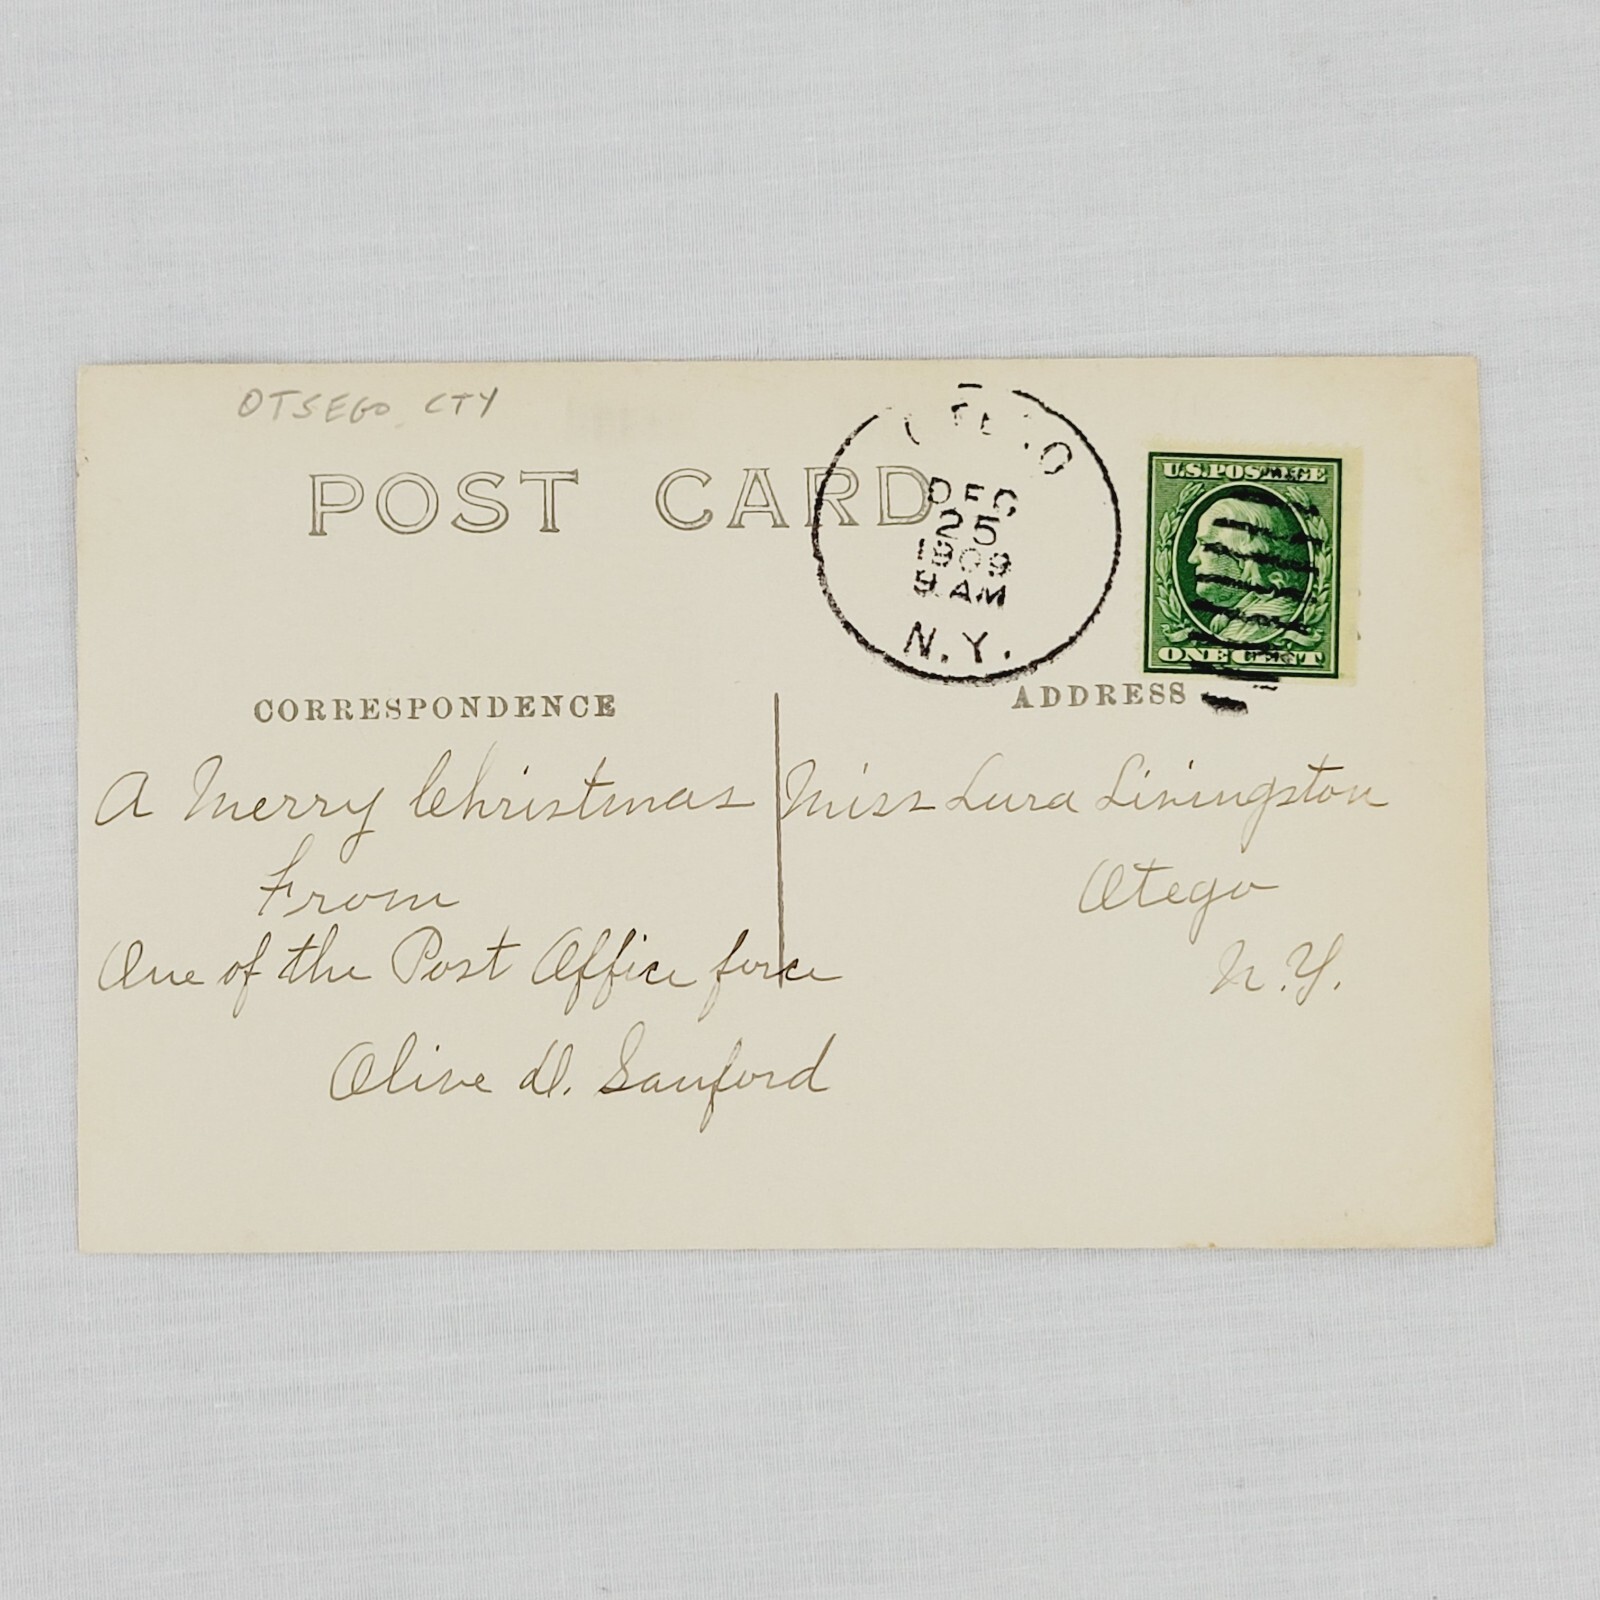 OTSEGO CTY
POST CARD
DEC
25
1909
9 AM
N.Y.
U.S. POSTAGE
ONE CENT
CORRESPONDENCE
ADDRESS
A Merry Christmas
From
One of the Post Office force
Olive D. Sanford
Miss Lura Livingston
Otego
N.Y.